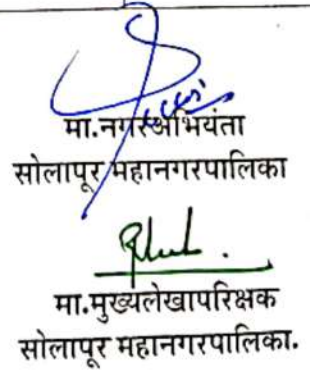 मा.नगरअभियंता
सोलापूर महानगरपालिका
मा.मुख्यलेखापरिक्षक
सोलापूर महानगरपालिका.